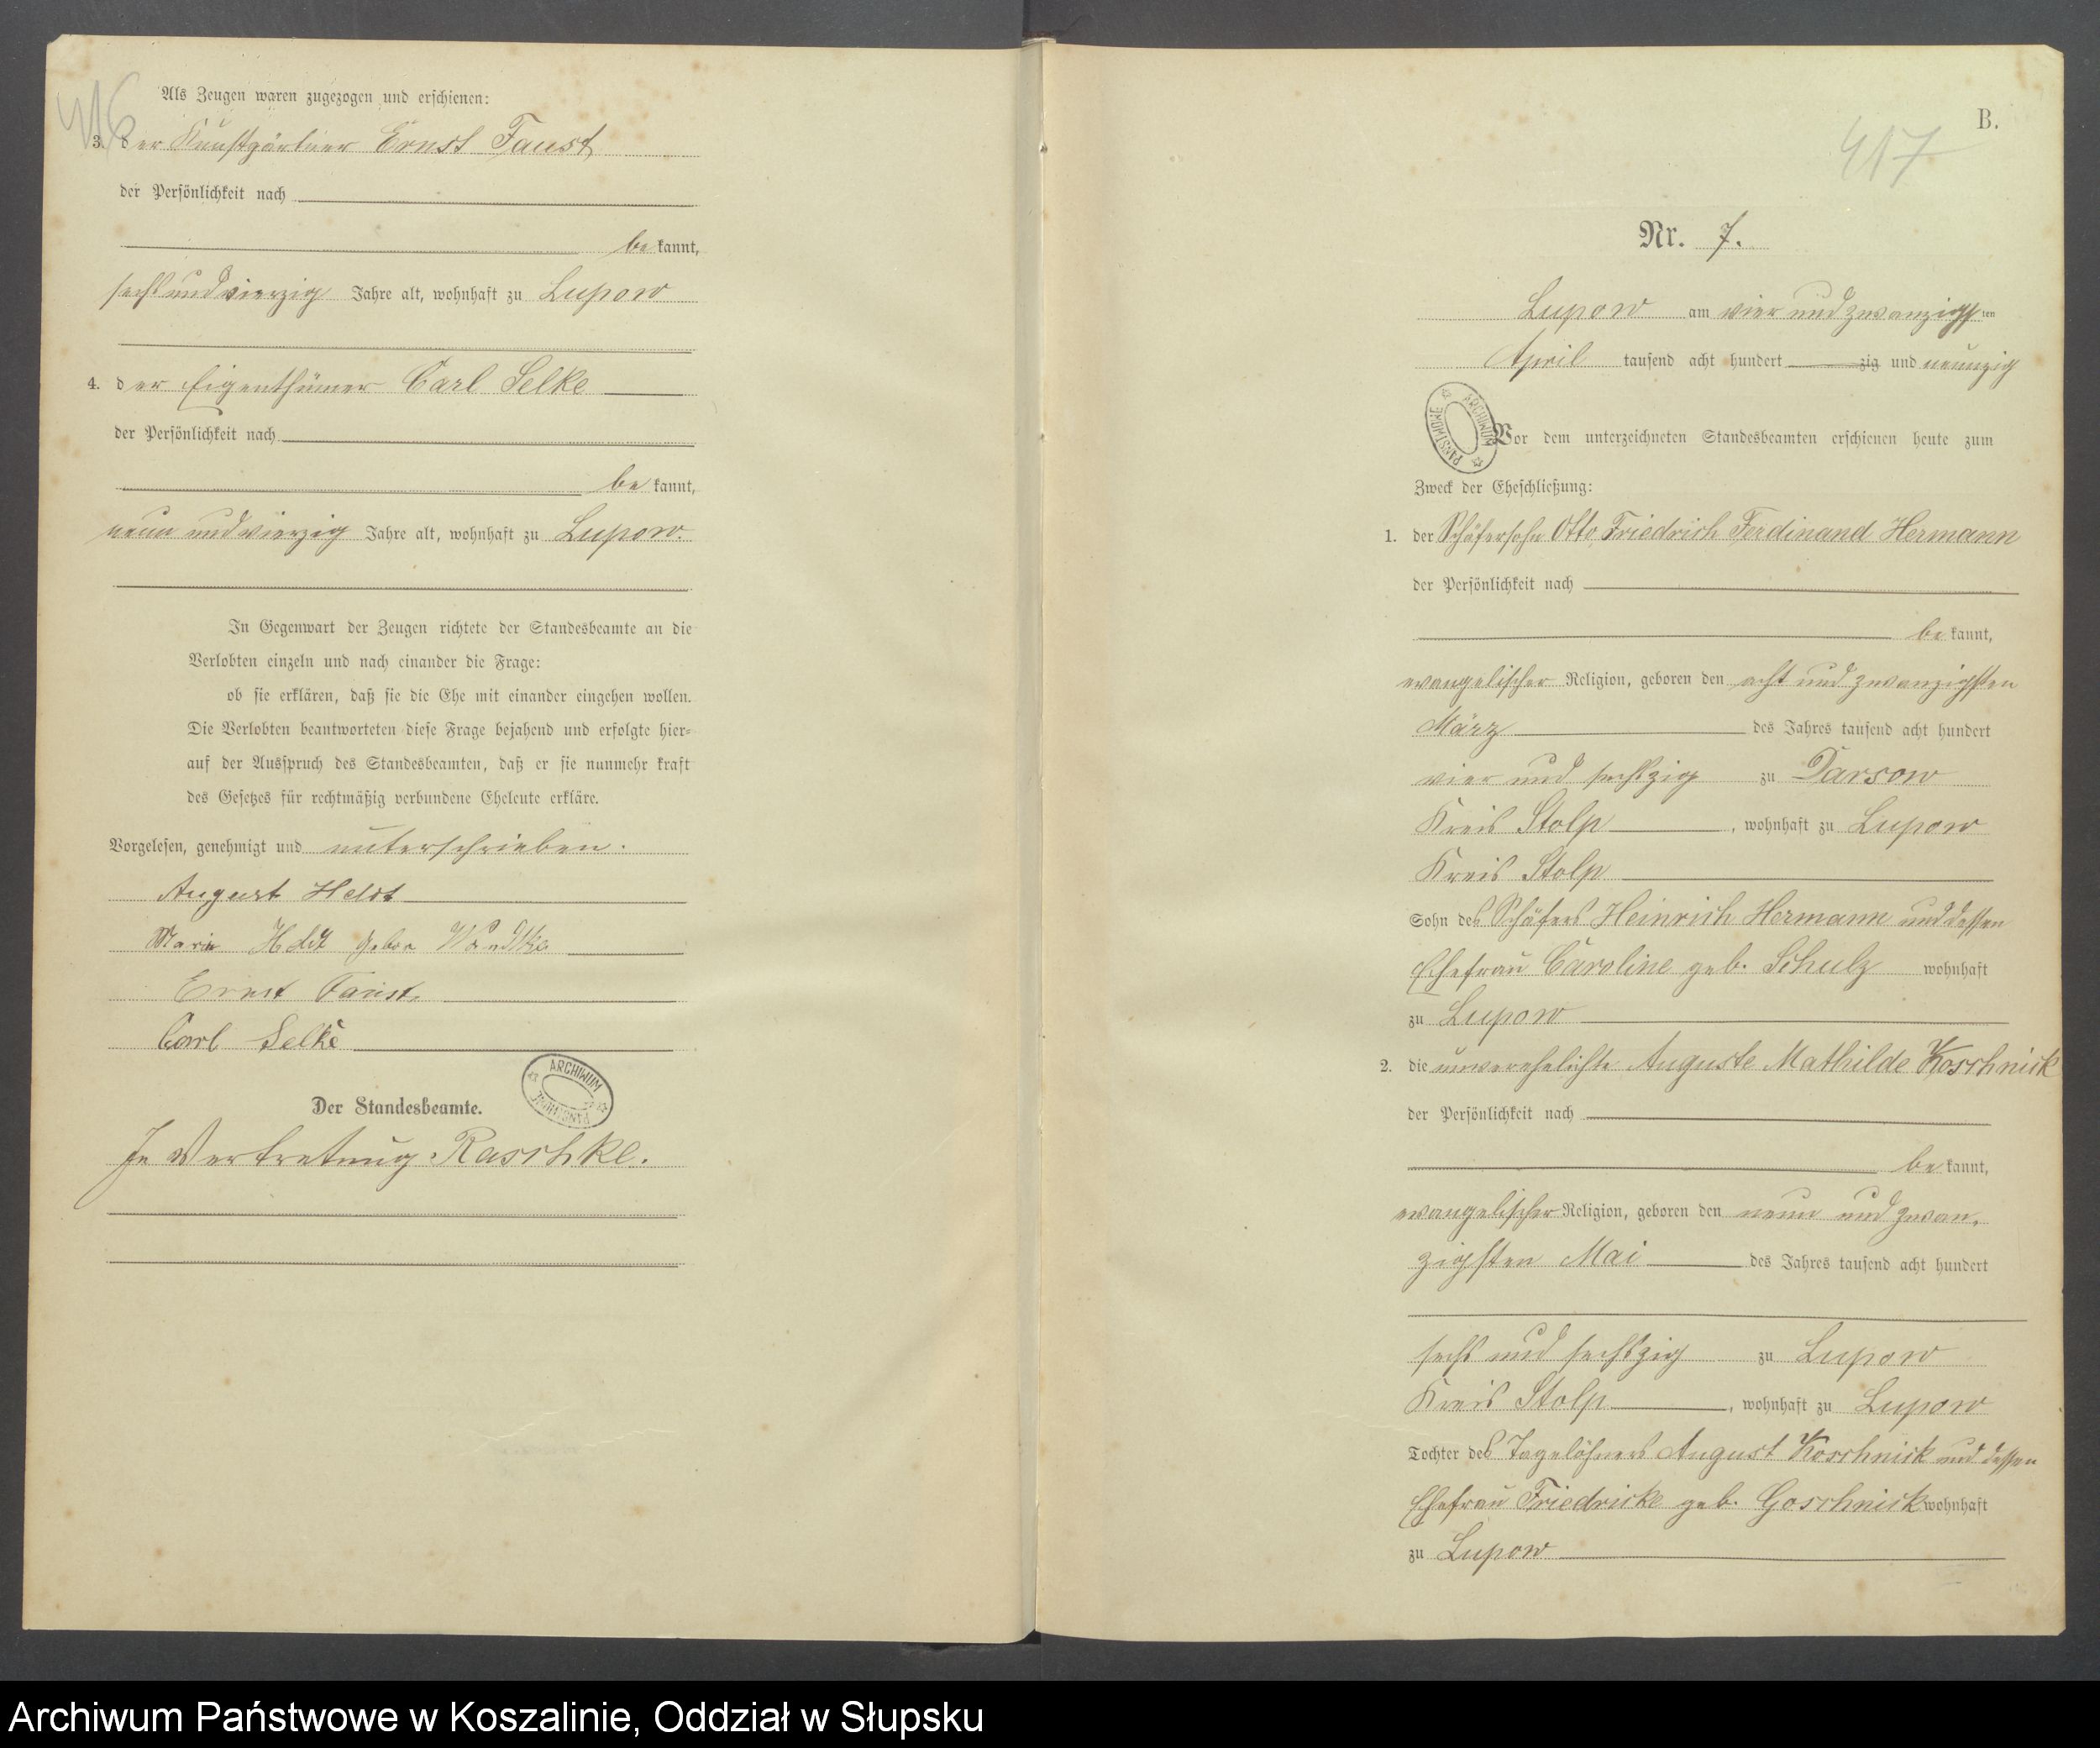 416
Als Zeugen waren zugezogen und erschienen:
3. der Kunstgärtner Ernst Faust
der Persönlichkeit nach
bekannt,
sechsundvierzig Jahre alt, wohnhaft zu Lupow
4. der Eigenthümer Carl Selke
der Persönlichkeit nach
bekannt,
neun und vierzig Jahre alt, wohnhaft zu Lupow.
In Gegenwart der Zeugen richtete der Standesbeamte an die
Verlobten einzeln und nach einander die Frage:
ob sie erklären, daß sie die Ehe mit einander eingehen wollen.
Die Verlobten beantworteten diese Frage bejahend und erfolgte hier=
auf der Ausspruch des Standesbeamten, daß er sie nunmehr kraft
des Gesetzes für rechtmäßig verbundene Eheleute erkläre.
Vorgelesen, genehmigt und unterschrieben.
August Heldt
Marie Heldt gebor
Ernst Faust.
Carl Selke
ARCHIWUM PAŃSTWOWE
Der Standesbeamte.
In Vertretung. Raschke.
B.
417
Nr. 7.
Lupow am vier und zwanzigsten
April tausend acht hundert zig und neunzig
ARCHIWUM PAŃSTWOWE
Vor dem unterzeichneten Standesbeamten erschienen heute zum
Zweck der Eheschließung:
1. der Schäfersohn Otto Friedrich Ferdinand Hermann
der Persönlichkeit nach
bekannt,
evangelischer Religion, geboren den acht und zwanzigsten
März des Jahres tausend acht hundert
vier und sechszig zu Darsow
Kreis Stolp, wohnhaft zu Lupow
Kreis Stolp
Sohn des Schäfers Heinrich Hermann und dessen
Ehefrau Caroline geb. Schulz wohnhaft
zu Lupow
2. die unverehelichte Auguste Mathilde Koschnick
der Persönlichkeit nach
bekannt,
evangelischer Religion, geboren den neun und zwan-
zigsten Mai des Jahres tausend acht hundert
sechs und sechszig zu Lupow
Kreis Stolp, wohnhaft zu Lupow
Tochter des Tagelöhners August Koschnick und dessen
Ehefrau Friedricke geb. Goschnick wohnhaft
zu Lupow
Archiwum Państwowe w Koszalinie, Oddział w Słupsku